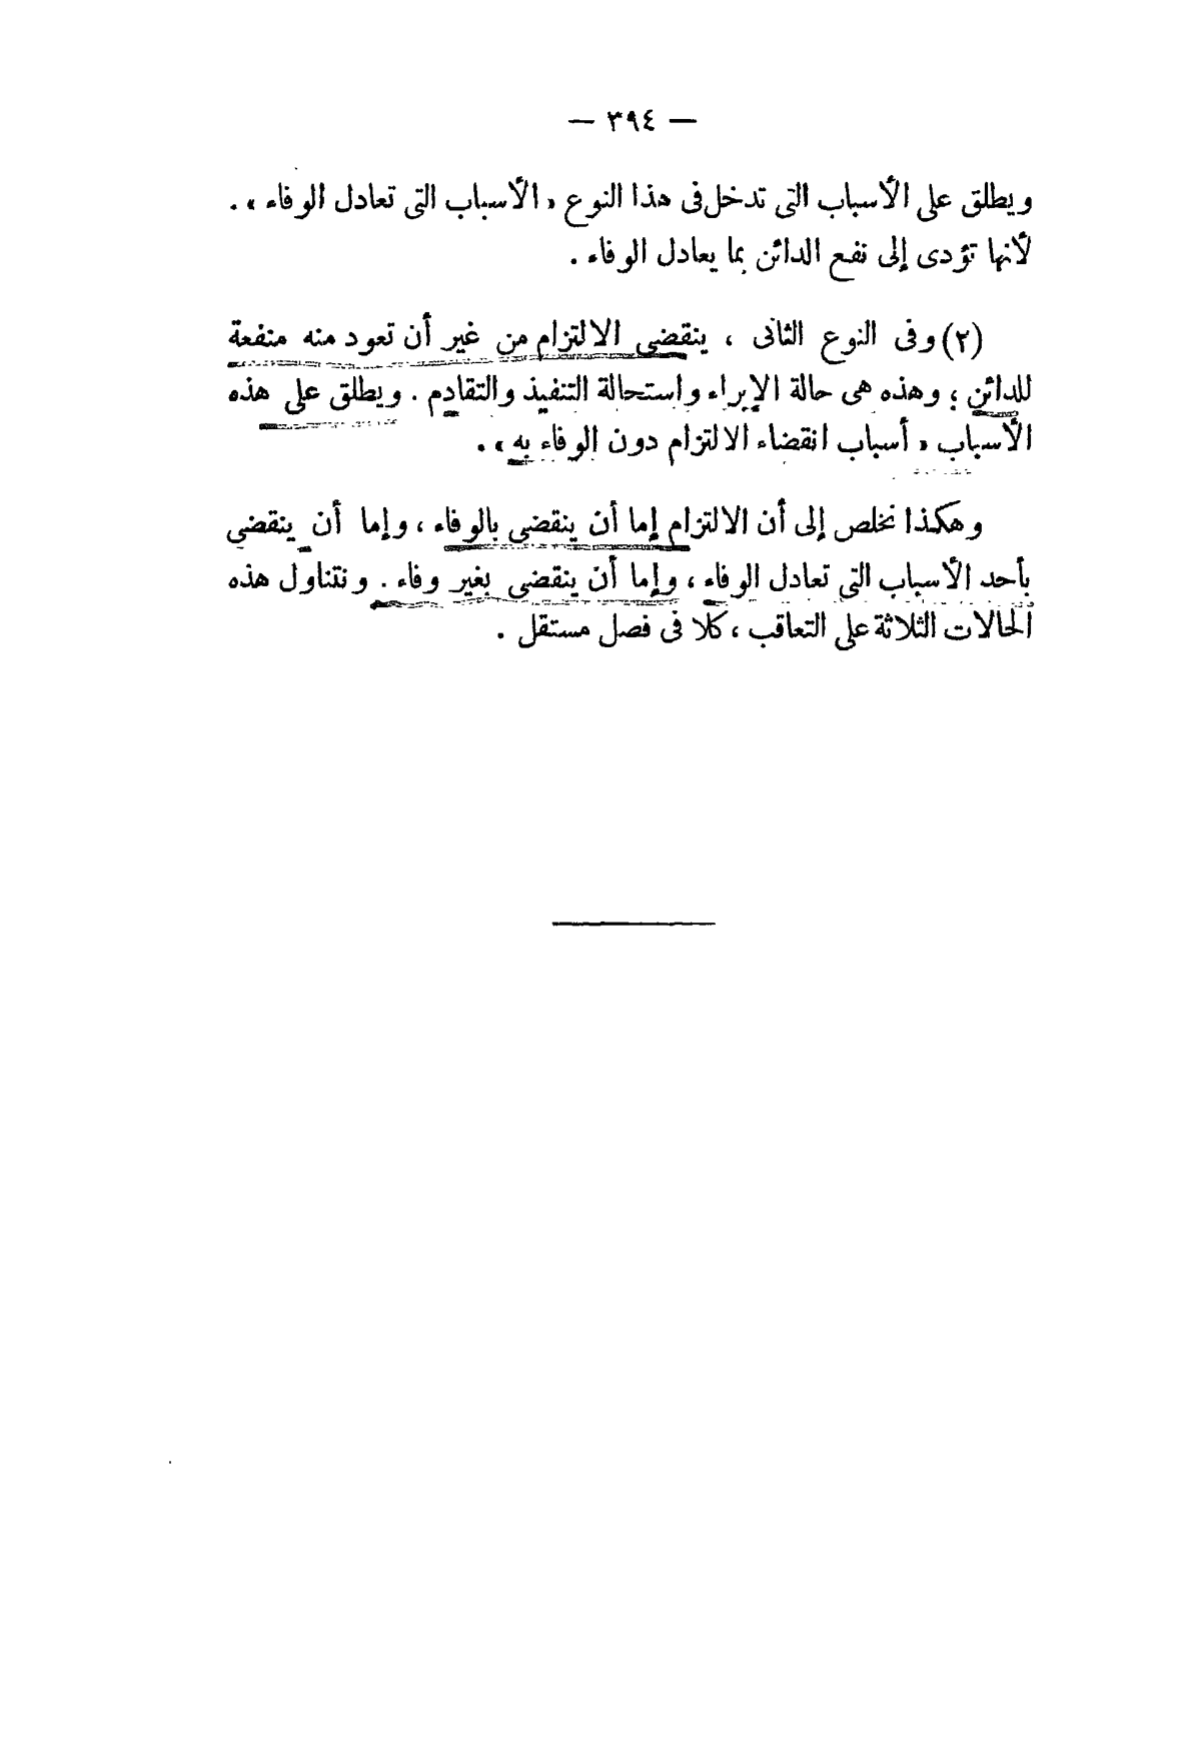 — ٣٩٤ —
ويطلق على الأسباب التى تدخل فى هذا النوع « الأسباب التى تعادل الوفاء » .
لأنها تؤدى إلى نفع الدائن بما يعادل الوفاء .
(٢) وفى النوع الثانى ، ينقضى الالتزام من غير أن تعود منه منفعة
للدائن ؛ وهذه هى حالة الإبراء واستحالة التنفيذ والتقادم . ويطلق على هذه
الأسباب « أسباب انقضاء الالتزام دون الوفاء به » .
وهكذا نخلص إلى أن الالتزام إما أن ينقضى بالوفاء ، وإما أن ينقضى
بأحد الأسباب التى تعادل الوفاء ، وإما أن ينقضى بغير وفاء . ونتناول هذه
الحالات الثلاثة على التعاقب ، كلا فى فصل مستقل .